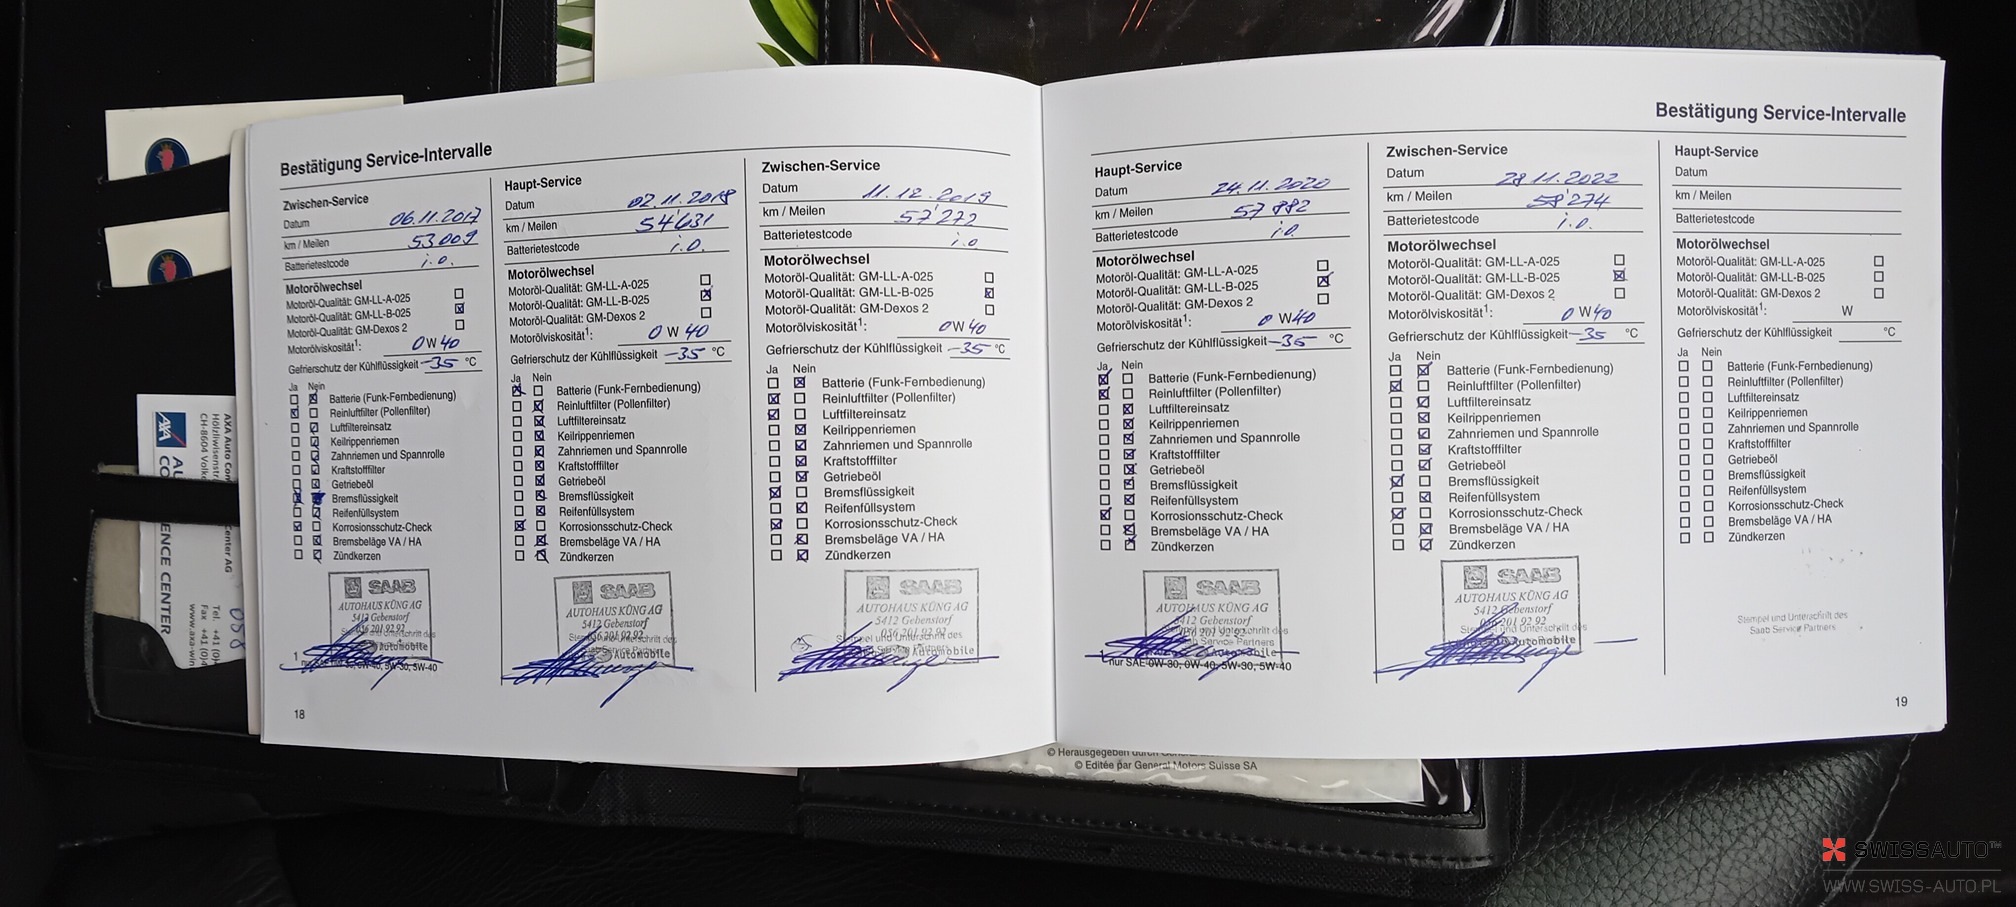 Bestätigung Service-Intervalle
Zwischen-Service
Datum 06.11.2017
km / Meilen 53009
Batterietestcode i.o.
Motorölwechsel
Motoröl-Qualität: GM-LL-A-025 ☐
Motoröl-Qualität: GM-LL-B-025 ☒
Motoröl-Qualität: GM-Dexos 2 ☐
Motorölviskosität¹: 0 W 40
Gefrierschutz der Kühlflüssigkeit -35 °C
Ja Nein
Batterie (Funk-Fernbedienung)
Reinluftfilter (Pollenfilter)
Luftfiltereinsatz
Keilrippenriemen
Zahnriemen und Spannrolle
Kraftstofffilter
Getriebeöl
Bremsflüssigkeit
Reifenfüllsystem
Korrosionsschutz-Check
Bremsbeläge VA / HA
Zündkerzen
SAAB
AUTOHAUS KÜNG AG
5412 Gebenstorf
056 201 92 92
Automobile
18
Haupt-Service
Datum 02.11.2018
km / Meilen 54'631
Batterietestcode i.o.
Motorölwechsel
Motoröl-Qualität: GM-LL-A-025 ☐
Motoröl-Qualität: GM-LL-B-025 ☒
Motoröl-Qualität: GM-Dexos 2 ☐
Motorölviskosität¹: 0 W 40
Gefrierschutz der Kühlflüssigkeit -35 °C
Ja Nein
Batterie (Funk-Fernbedienung)
Reinluftfilter (Pollenfilter)
Luftfiltereinsatz
Keilrippenriemen
Zahnriemen und Spannrolle
Kraftstofffilter
Getriebeöl
Bremsflüssigkeit
Reifenfüllsystem
Korrosionsschutz-Check
Bremsbeläge VA / HA
Zündkerzen
SAAB
AUTOHAUS KÜNG AG
5412 Gebenstorf
056 201 92 92
Automobile
Zwischen-Service
Datum 11.12.2019
km / Meilen 57'272
Batterietestcode i.o.
Motorölwechsel
Motoröl-Qualität: GM-LL-A-025 ☐
Motoröl-Qualität: GM-LL-B-025 ☒
Motoröl-Qualität: GM-Dexos 2 ☐
Motorölviskosität¹: 0 W 40
Gefrierschutz der Kühlflüssigkeit -35 °C
Ja Nein
Batterie (Funk-Fernbedienung)
Reinluftfilter (Pollenfilter)
Luftfiltereinsatz
Keilrippenriemen
Zahnriemen und Spannrolle
Kraftstofffilter
Getriebeöl
Bremsflüssigkeit
Reifenfüllsystem
Korrosionsschutz-Check
Bremsbeläge VA / HA
Zündkerzen
SAAB
AUTOHAUS KÜNG AG
5412 Gebenstorf
056 201 92 92
Stempel und Unterschrift des
Automobile
Bestätigung Service-Intervalle
Haupt-Service
Datum 24.11.2020
km / Meilen 57882
Batterietestcode i.o.
Motorölwechsel
Motoröl-Qualität: GM-LL-A-025 ☐
Motoröl-Qualität: GM-LL-B-025 ☒
Motoröl-Qualität: GM-Dexos 2 ☐
Motorölviskosität¹: 0 W 40
Gefrierschutz der Kühlflüssigkeit -35 °C
Ja Nein
Batterie (Funk-Fernbedienung)
Reinluftfilter (Pollenfilter)
Luftfiltereinsatz
Keilrippenriemen
Zahnriemen und Spannrolle
Kraftstofffilter
Getriebeöl
Bremsflüssigkeit
Reifenfüllsystem
Korrosionsschutz-Check
Bremsbeläge VA / HA
Zündkerzen
SAAB
AUTOHAUS KÜNG AG
5412 Gebenstorf
056 201 92 92
Stempel und Unterschrift des
Saab Service Partners
Automobile
¹ nur SAE 0W-30, 0W-40, 5W-30, 5W-40
Zwischen-Service
Datum 28.11.2022
km / Meilen 58'274
Batterietestcode i.o.
Motorölwechsel
Motoröl-Qualität: GM-LL-A-025 ☐
Motoröl-Qualität: GM-LL-B-025 ☒
Motoröl-Qualität: GM-Dexos 2 ☐
Motorölviskosität¹: 0 W 40
Gefrierschutz der Kühlflüssigkeit -35 °C
Ja Nein
Batterie (Funk-Fernbedienung)
Reinluftfilter (Pollenfilter)
Luftfiltereinsatz
Keilrippenriemen
Zahnriemen und Spannrolle
Kraftstofffilter
Getriebeöl
Bremsflüssigkeit
Reifenfüllsystem
Korrosionsschutz-Check
Bremsbeläge VA / HA
Zündkerzen
SAAB
AUTOHAUS KÜNG AG
5412 Gebenstorf
056 201 92 92
Stempel und Unterschrift des
Automobile
Haupt-Service
Datum
km / Meilen
Batterietestcode
Motorölwechsel
Motoröl-Qualität: GM-LL-A-025 ☐
Motoröl-Qualität: GM-LL-B-025 ☐
Motoröl-Qualität: GM-Dexos 2 ☐
Motorölviskosität¹: W
Gefrierschutz der Kühlflüssigkeit °C
Ja Nein
Batterie (Funk-Fernbedienung)
Reinluftfilter (Pollenfilter)
Luftfiltereinsatz
Keilrippenriemen
Zahnriemen und Spannrolle
Kraftstofffilter
Getriebeöl
Bremsflüssigkeit
Reifenfüllsystem
Korrosionsschutz-Check
Bremsbeläge VA / HA
Zündkerzen
Stempel und Unterschrift des
Saab Service Partners
19
AXA
AXA Auto
CH-8604
Center AG
Tel. +41
Fax +41
www.axa-win
058
© Editée par General Motors Suisse SA
SWISSAUTO™
WWW.SWISS-AUTO.PL